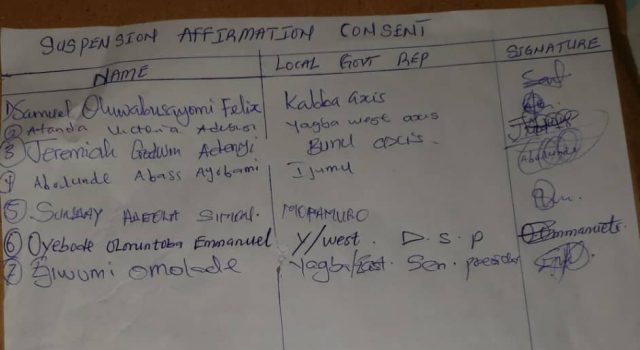 SUSPENSION AFFIRMATION CONSENT
NAME LOCAL GOVT REP SIGNATURE
1) Samuel Oluwabusayomi Felix Kabba axis
2 Atanda Victoria Adebusi Yagba west axis
3 Jeremiah Godwin Adeniyi Bunu axis.
4 Abodunde Abass Ayobami Ijumu
5 SUNDAY ADEOLA SIMEON. MOPAMURO
6 Oyebode Oloruntoba Emmanuel Y/west. D.S.P
7 Ejiwumi Omolade Yagba/East. Sen. president